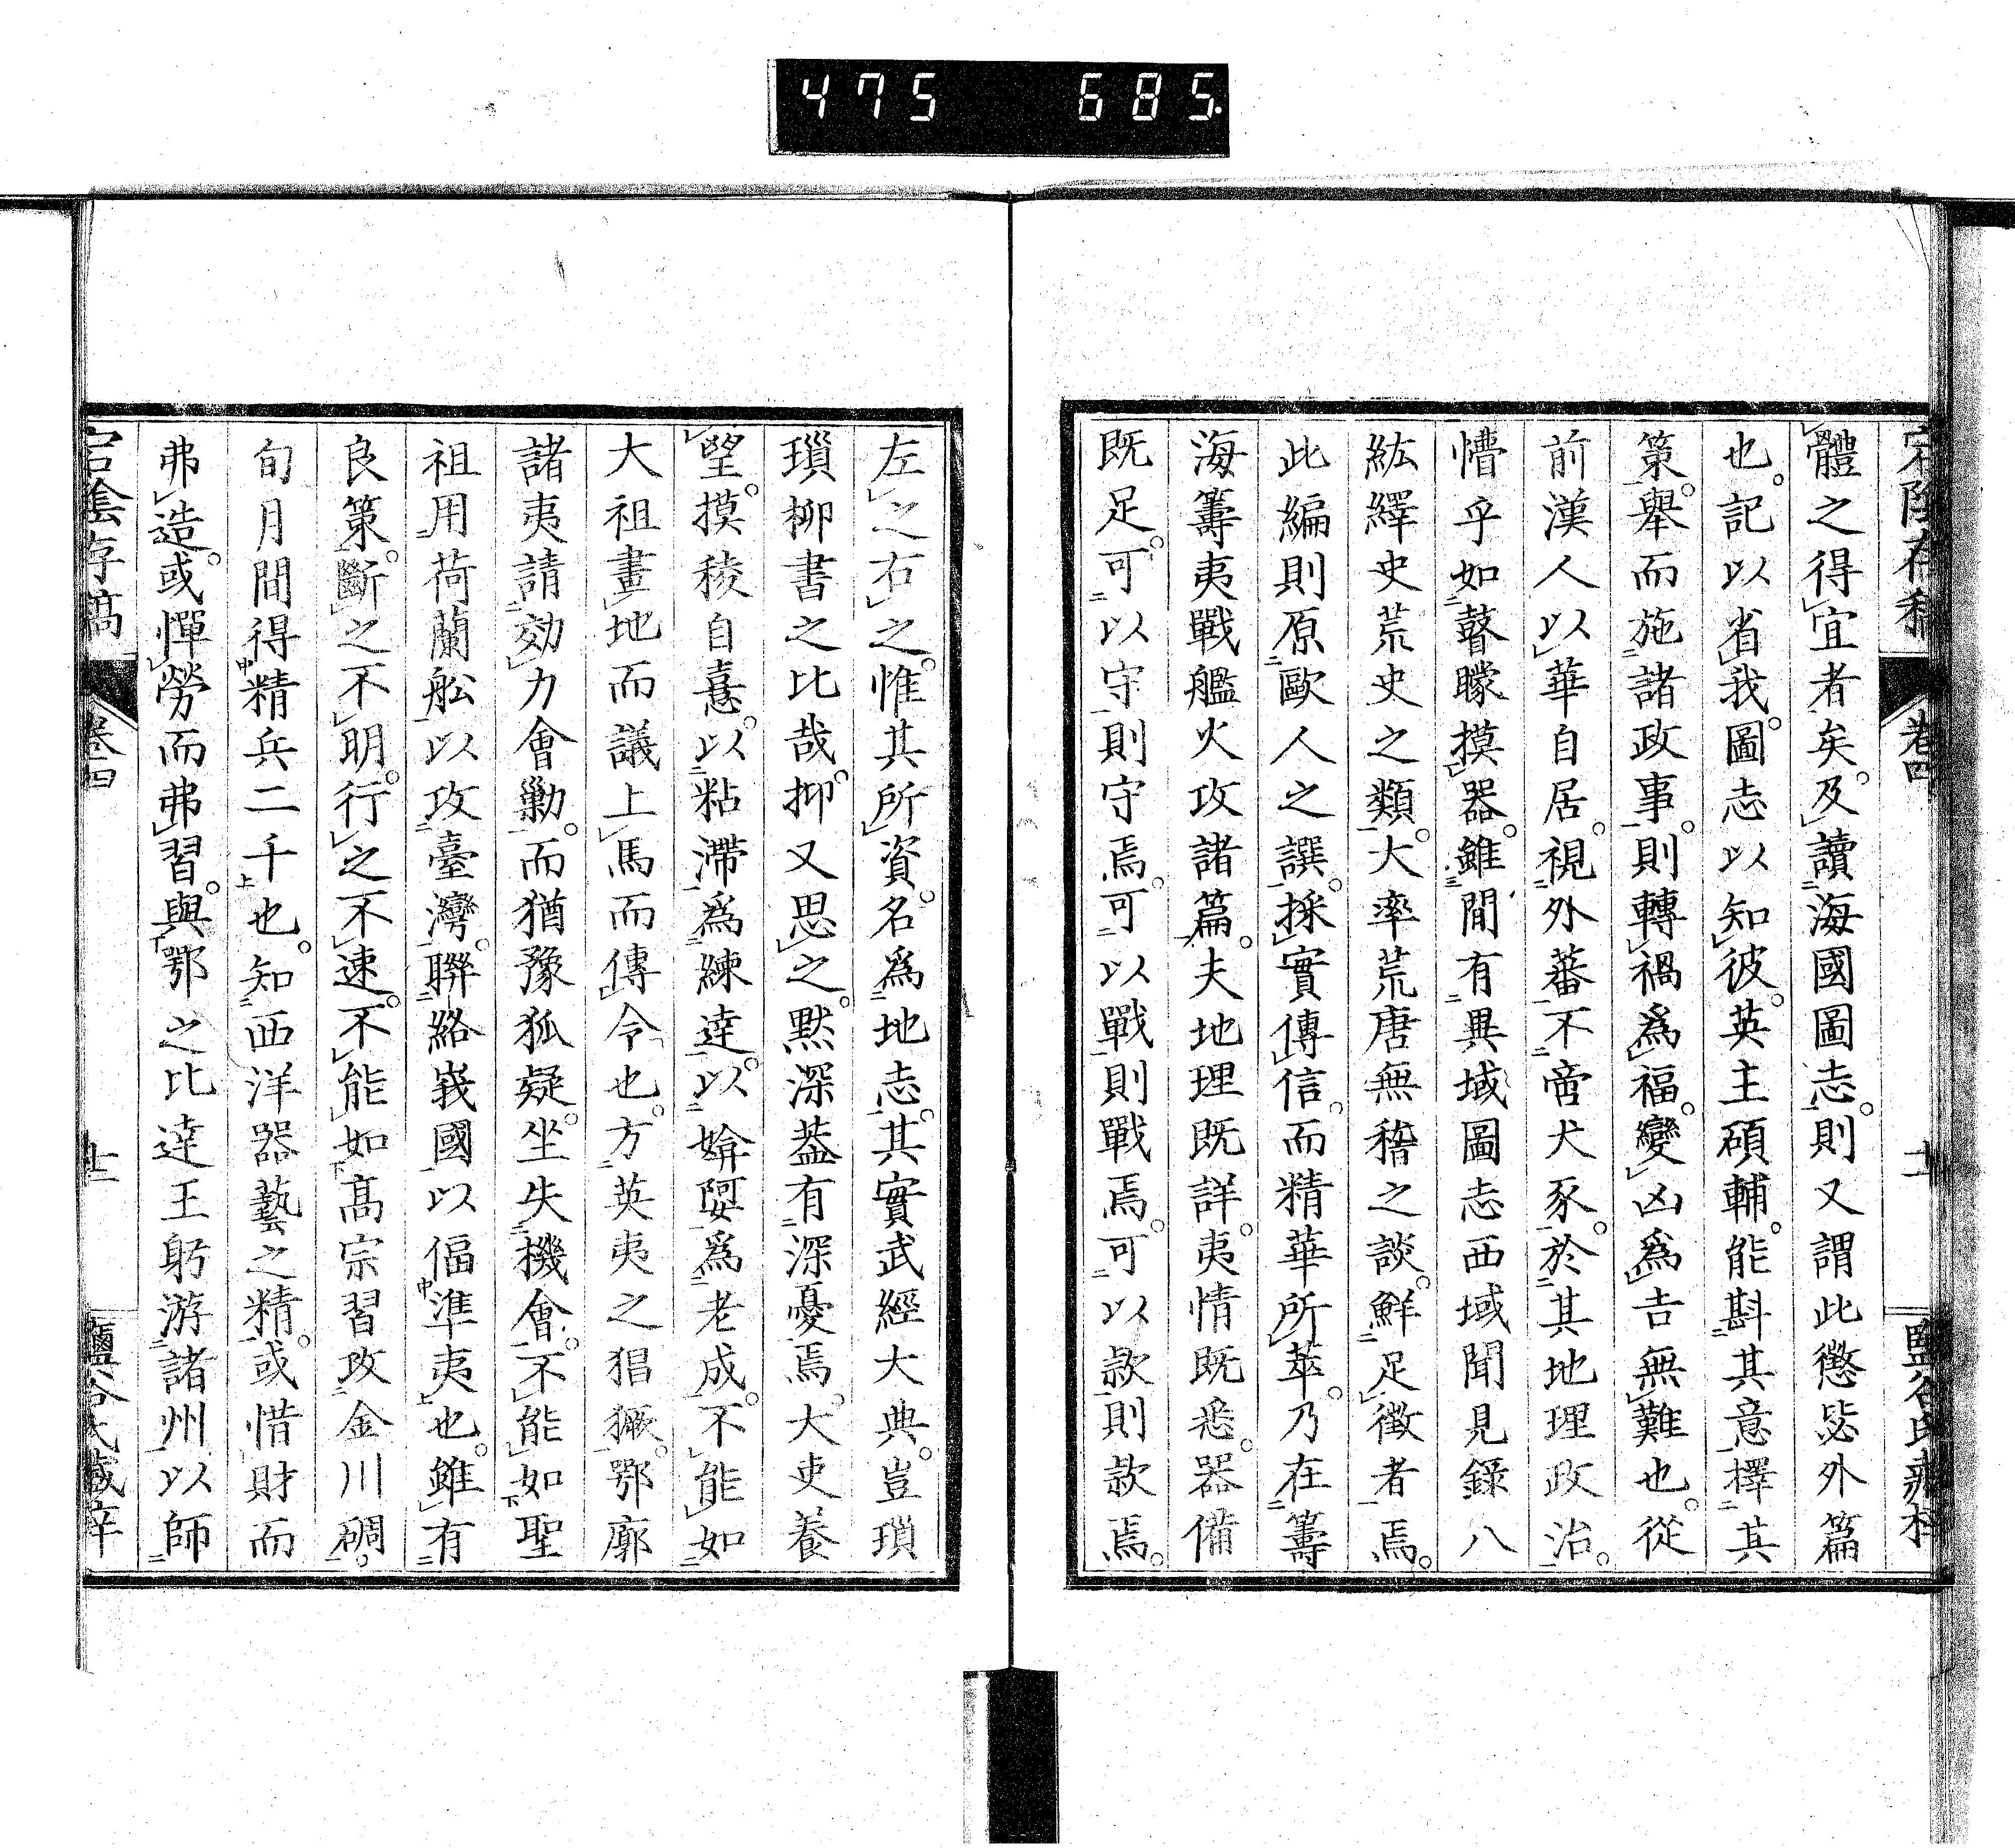 475 685.
宕陰存稿 卷四 十一 鹽谷氏藏梓
體之得宜者矣。及讀海國圖志。則又謂此懲毖外篇
也。記以省我。圖志以知彼。英主碩輔。能斟其意擇其
策。舉而施諸政事。則轉禍爲福。變凶爲吉無難也。從
前漢人以華自居。視外蕃不啻犬豕。於其地理政治。
懵乎如瞽矇摸器。雖間有異域圖志西域聞見錄八
紘繹史荒史之類。大率荒唐無稽之談。鮮足徵者焉。
此編則原歐人之譔。採實傳信。而精華所萃。乃在籌
海籌夷戰艦火攻諸篇。夫地理既詳。夷情既悉。器備
既足。可以守則守焉。可以戰則戰焉。可以款則款焉。
左之右之。惟其所資。名爲地志。其實武經大典。豈瑣
瑣柳書之比哉。抑又思之。默深蓋有深憂焉。大吏養
望。摸稜自憙。以粘滯爲練達。以媕婀爲老成。不能如
大祖畫地而議上馬而傳令也。方英夷之猖獗。鄂廓
諸夷請効力會勦。而猶豫狐疑。坐失機會。不能如聖
祖用荷蘭舩以攻臺灣。聯絡峩國以偪準夷也。雖有
良策。斷之不明。行之不速。不能如高宗習攻金川碉。
旬月間得精兵二千也。知西洋器藝之精。或惜財而
弗造。或憚勞而弗習。與鄂之比達王躬游諸州以師
宕陰存稿 卷四 十二 鹽谷氏藏梓